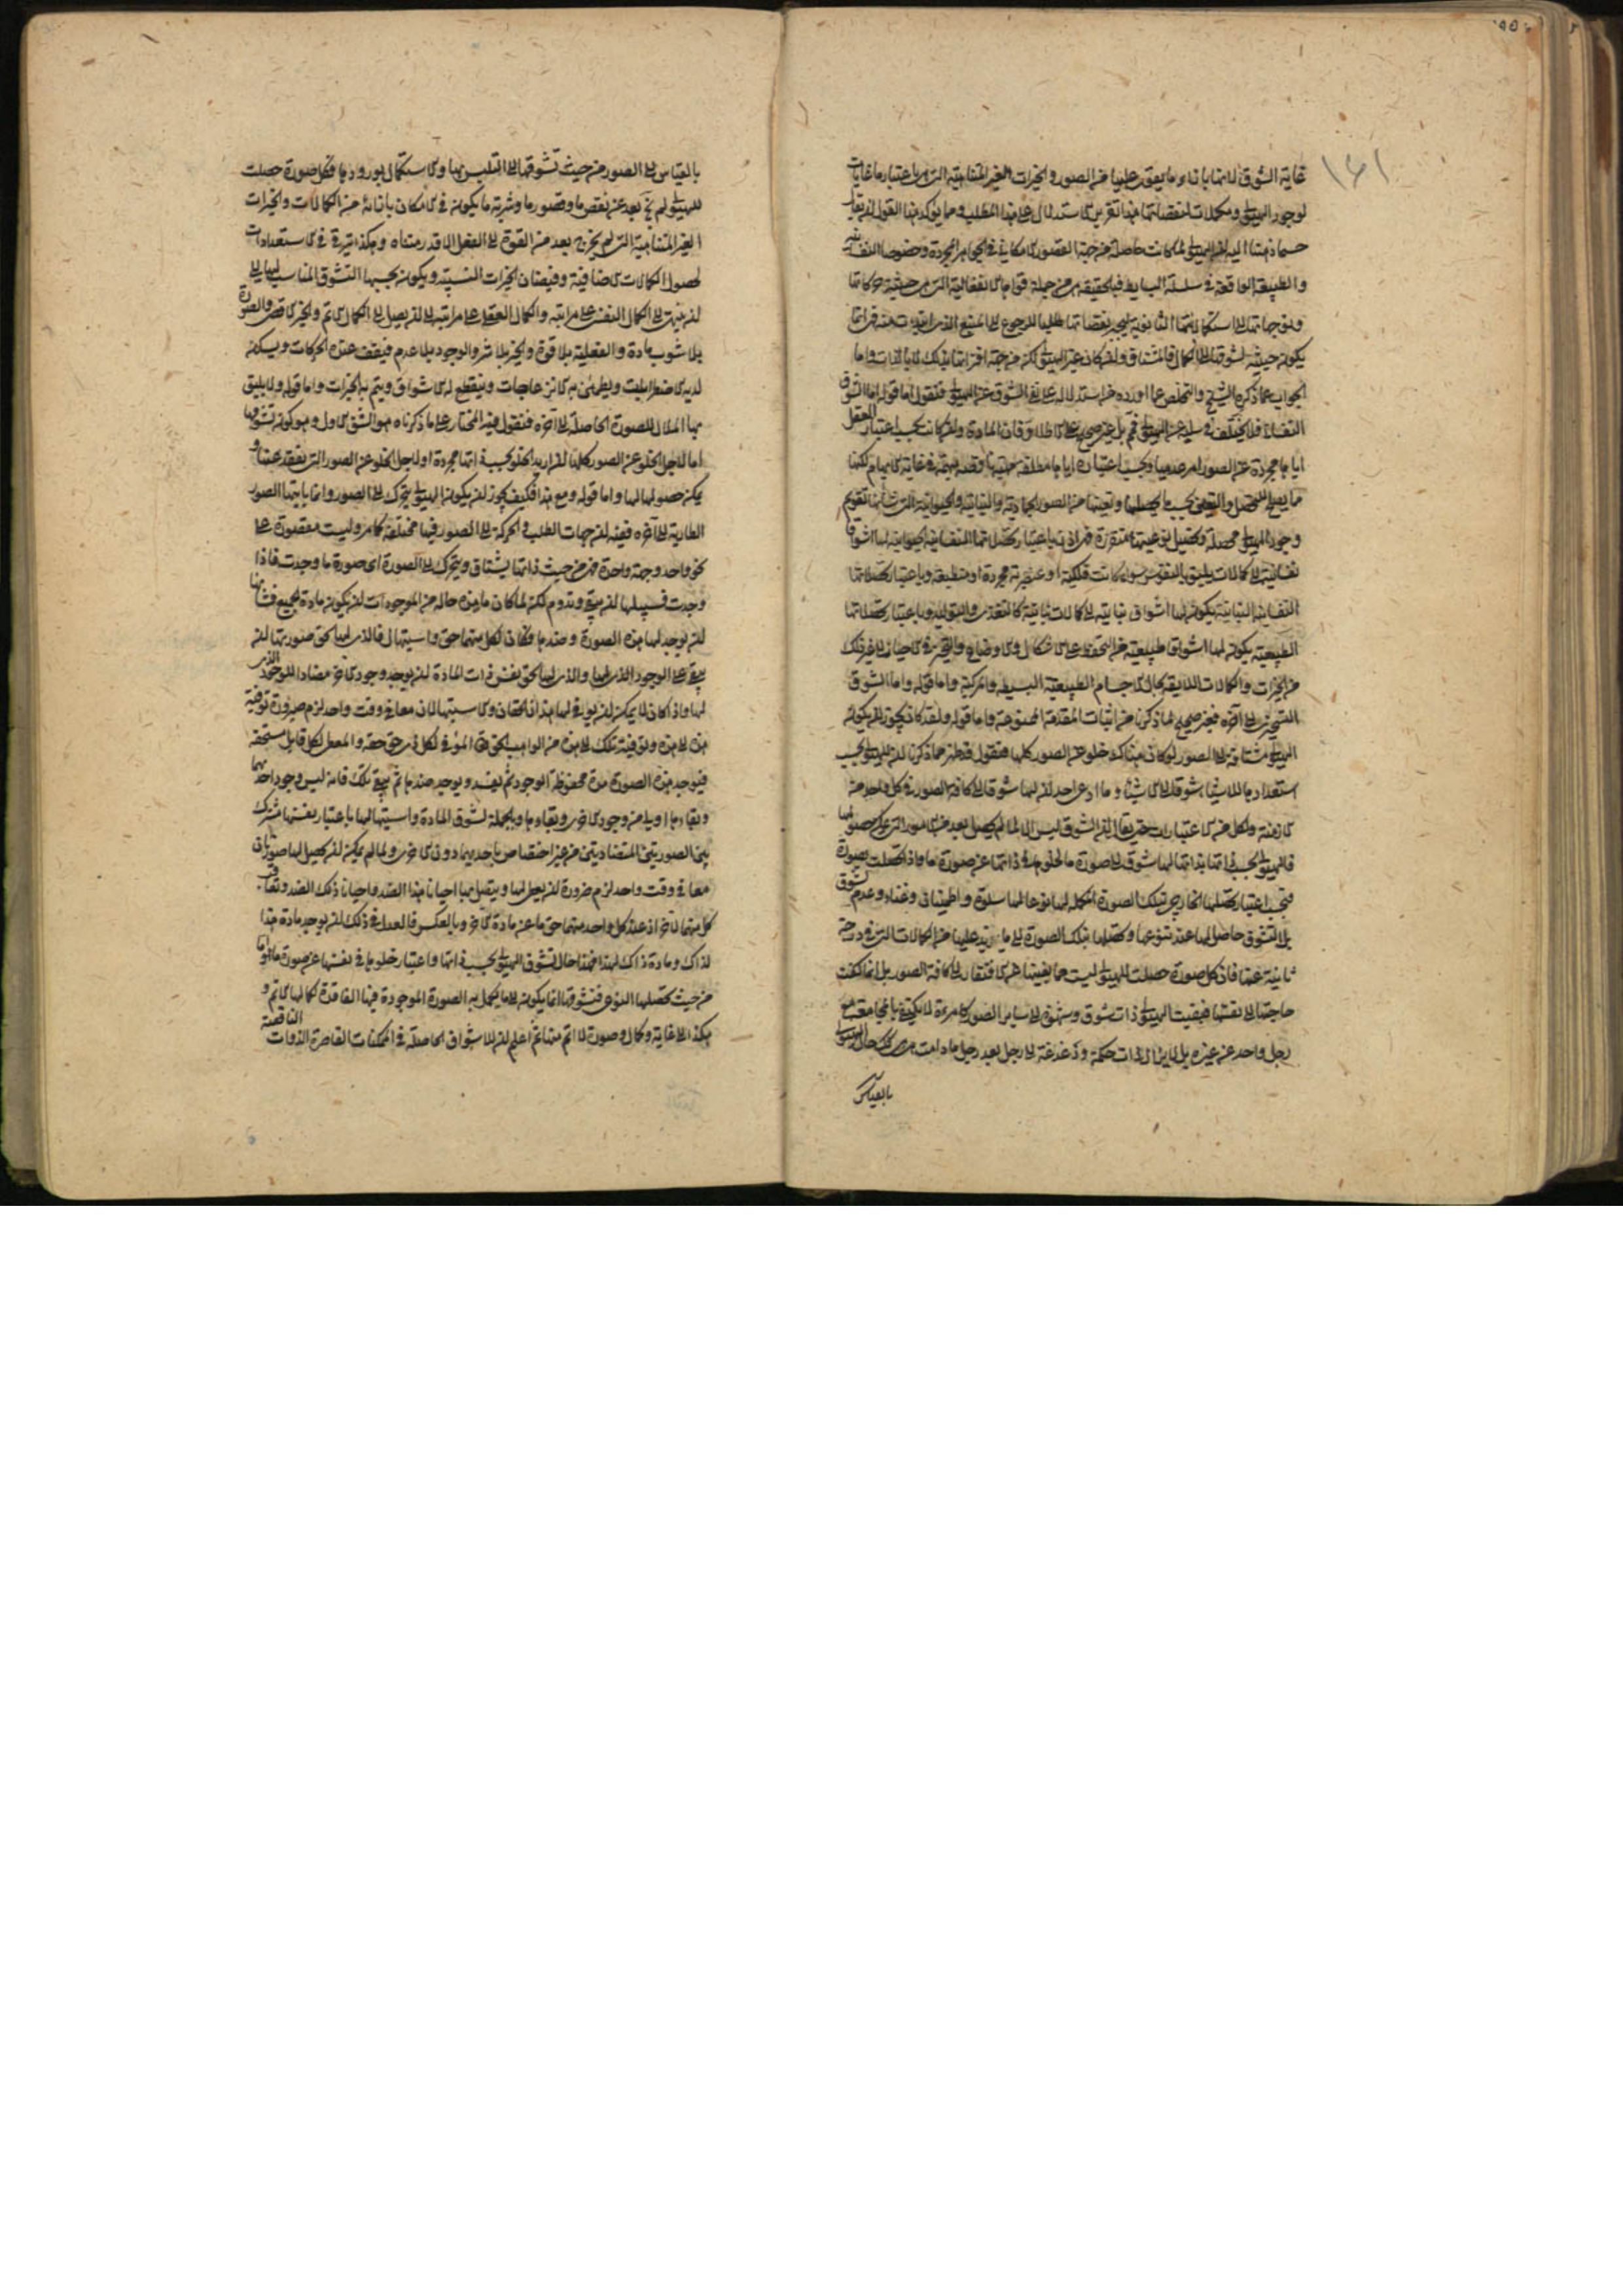 ١٤١
غاية الشوق لامتيازها بازاء ما يعوق عليها من الصور والخيرات الغير المتناهية التي هي باعتبارها غايات
لوجود الهيولى ومكملات لنقصاناتها هذا تقرير الاستدلال على هذا المطلب ومما يؤكد هذا القول لن يقال
حسبما ذهبنا اليه لن الهيولى لما كانت حاصلة من جهة القصور الامكاني في الجواهر المجردة وخصوصا النفسانية
والطبيعة الواقعة في سلسلة البسايط فبالحقيقة هي من جملة قوامها الانفعالية التي هي حيثية حركاتها
وتوجهاتها الى استكمالاتها الثانوية ليجبر نقصاناتها طلبا للرجوع الى المنبع الذي ابتدءت منه فذاتها
يكون حيثية لشوقها الى الكمال فالمشتاق ولن كان غير الهيولى لكن من جهة اقترانها بتلك لا بالذات واما
الجواب عما ذكره الشيخ والتخلص عما اورده من استدلاله على نفى الشوق عن الهيولى فنقول اما قوله اما الشوق
النفساني فلا يختلف في سلبه عن الهيولى فهو بل غير صحيح على الاطلاق فان المادة ولن كانت بحسب اعتبار العقل
اياها مجردة عن الصور امر عدميا وبحسب اعتباره اياها مطلقة حقيقتها وقعت مبهمة في غاية الابهام لكنها
مما يصلح للتحصل والتعين بحسب ما يحصلها وتعينها من الصور الجمادية والنباتية والحيوانية التي شأنها تقويم
وجود الهيولى محصلة وتحصيل نوعيتها متقررة فهي اذن باعتبار تحصلاتها النفسانية الحيوانية لها اشواق
نفسانية الى كمالات يليق بالنفوس سواء كانت فلكية او عنصرية مجردة او منطبعة وباعتبار تحصلاتها
النفسانية النباتية يكون لها اشواق نباتية الى كمالات نباتية كالتغذى والتوليد وباعتبار تحصلاتها
الطبيعية يكون لها اشواق طبيعية من التحفظ على الاشكال والاوضاع والتحيز في الاحياز الى غير ذلك
من الخيرات والكمالات اللايقة بحال الاجسام الطبيعية البسيطة والمركبة واما قوله واما الشوق
التسخيري الى آخره فغير صحيح لما ذكرنا من اثبات المقدمة الممنوعة واما قوله ولقد كان يجوز لن يكون
الهيولى مشتاقة الى الصور لو كان هناك خلو عن الصور كلها فنقول قد ظهر مما ذكرنا لن للهيولى بحسب
استعدادها للاشياء شوقا الى الاشياء وما ادعى احد لن لها شوقا الى كافة الصور في كل واحد من
الازمنة وبكل من الاعتبارات حتى يقال لن الشوق ليس الا لما لم يحصل بعد من الامور التي يمكن حصولها
فالهيولى بحسب ذاتها بذاتها لها شوق الى صورة ما لخلوها في ذاتها عن صورة ما فاذا تحصلت بصورة
فبحسب اعتبار تحصلها الخارجي بتلك الصورة المكملة لها نوعا لها سلوة واطمينان وغناء وعدم شوق
بل التشوق حاصل لها عند تنوعها وتحصلها بتلك الصورة الى ما يزيد عليها من الكمالات التي في درجة
ثانية عنها فاذن كل صورة حصلت للهيولى ليست مما يغنيها عن الافتقار الى كافة الصور بل انما كفت
حاجتها الى نفسها فبقيت الهيولى ذات شوق وشهوة الى ساير الصور كامرءة لا يكتفى بمجامعة
رجل واحد عن غيره بل لا يزال ذات حكة ودغدغة الى رجل بعد رجل ما دامت هي كذلك حال الهيولى
بالقياس
بالقياس الى الصور من حيث تشوقها الى التلبس بها والاستكمال بورودها فكل صورة حصلت
للهيولى لم تخل بعد عن نقص ما وقصور ما وشرية ما يكون في الامكان بازائه من الكمالات والخيرات
الغير المتناهية التي لم يخرج بعد من القوة الى الفعل الا قدر متناه وهكذا يترقى في الاستعدادات
لحصول الكمالات الاضافية وفيضان الخيرات النسبية ويكون بحسبها التشوق المناسب لها الى
لن ينتهي الى الكمال النفسي على مراتبه والكمال العقلي على مراتبه الى لن يصل الى الكمال الاتم والخير الاقصى والصورة
بلا شوب مادة والفعلية بلا قوة والخير بلا شر والوجود بلا عدم فيقف عنده الحركات ويسكن
لديه الاضطرابات ويطمئن به الانزعاجات وينقطع له الاشواق ويتم به الخيرات واما قوله ولا يليق
بها الملال للصورة الحاصلة الى آخره فنقول فيه المختار على ما ذكرناه هو الشق الاول وهو كون تشوقها
اما لاجل الخلو عن الصور كلها لن اريد الخلو بحسب ذاتها مجردة او لاجل الخلو عن الصور التي تفقد عنها و
يمكن حصولها لها واما قوله ومع هذا فكيف يجوز لن يكون الهيولى يتحرك الى الصور وانما يأتيها الصور
الطارية الى آخره ففيه لن جهات الطلب والحركة الى الصور فيها مختلفة كما مر وليست مقصورة على
نحو واحد وجهة واحدة فهي من حيث ذاتها يشتاق ويتحرك الى الصورة اي صورة ما وجدت فاذا
وجدت فسبيلها لن يبقى وتدوم لكن لما كان ما هذه حاله من الموجودات لن يكون مادة للجميع فشأنها
لن يوجد لها هذه الصورة وضدها وكان لكل منهما حق واستيهال فالذي لها بحق صورتها لن
يبقى على الوجود الذي لها والذي لها بحق نفس ذات المادة لن يوجد وجود الاخر مضادا للوجود الذي
لها واذ كان لا يمكن لن يوفي لها هذان الحقان والاستيهالان معا في وقت واحد لزم ضرورة توفية
هذه الى هذه وتوفية تلك الى هذه من الواجب الحق تعالى الموفي لكل ذي حق حقه والمعطى لكل قابل مستحقه
فيوجد هذه الصورة مدة محفوظة الوجود ثم يفسد ويوجد ضدها ثم يبقى تلك فانه ليس وجود احدهما
وبقاءها اولى من وجود الاخرى وبقاءها وبالجملة لشوق المادة واستيهالها باعتبار نفسها مشترك
بين الصورتين المتضادتين من غير اختصاص باحديهما دون الاخرى ولما لم يمكن لن يحصل لها صورتان
معا في وقت واحد لزم ضرورة لن يعطى لها ويتصل بها احيانا هذا الضد واحيانا ذلك الضد وتعاقب
كل منهما الاخر اذ عند كل واحد منهما حق ما عند مادة الاخر وبالعكس فالعدل في ذلك لن يوجد مادة هذا
لذاك ومادة ذاك لهذا فهذا حال تشوق الهيولى بحسب ذاتها واعتبار خلوها في نفسها عن صورة ما واما
من حيث تحصلها النوعي فتشوقها انما يكون الى ما يكمل به الصورة الموجودة فيها الفاقدة لكمالها الاتم و
هكذا الى غاية وكمال وصورة لا اتم منها ثم اعلم لن الاشواق الحاصلة في الممكنات القاصرة الذوات الناقصة